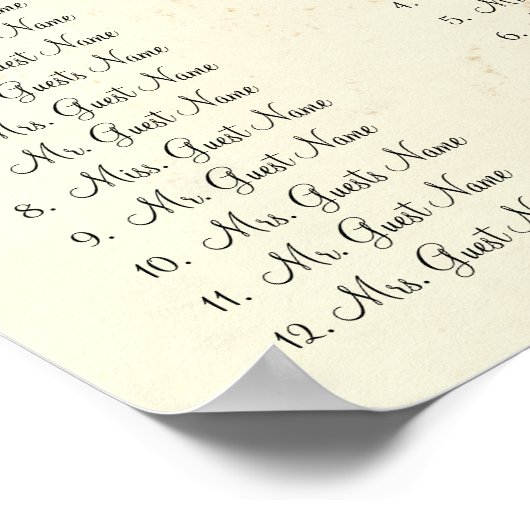 Name
Guest Name
Guests Name
Mrs. Guest Name
Mr. Guest Name
8. Miss. Guest Name
9. Mr. Guest Name
10. Mrs. Guests Name
11. Mr. Guest Name
12. Mrs. Guest
4.
5.
6.